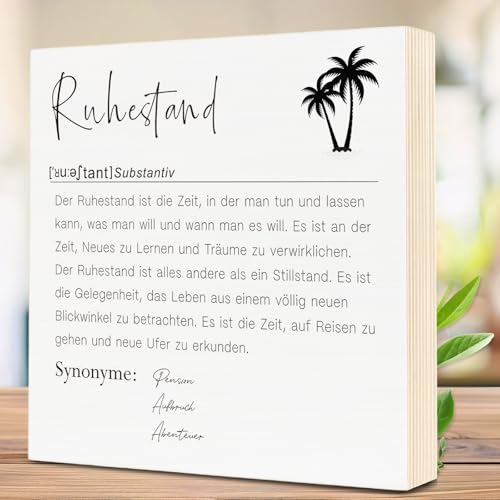 Ruhestand
['ʁuːəʃtant] Substantiv
Der Ruhestand ist die Zeit, in der man tun und lassen
kann, was man will und wann man es will. Es ist an der
Zeit, Neues zu Lernen und Träume zu verwirklichen.
Der Ruhestand ist alles andere als ein Stillstand. Es ist
die Gelegenheit, das Leben aus einem völlig neuen
Blickwinkel zu betrachten. Es ist die Zeit, auf Reisen zu
gehen und neue Ufer zu erkunden.
Synonyme: Pension
Aufbruch
Abenteuer